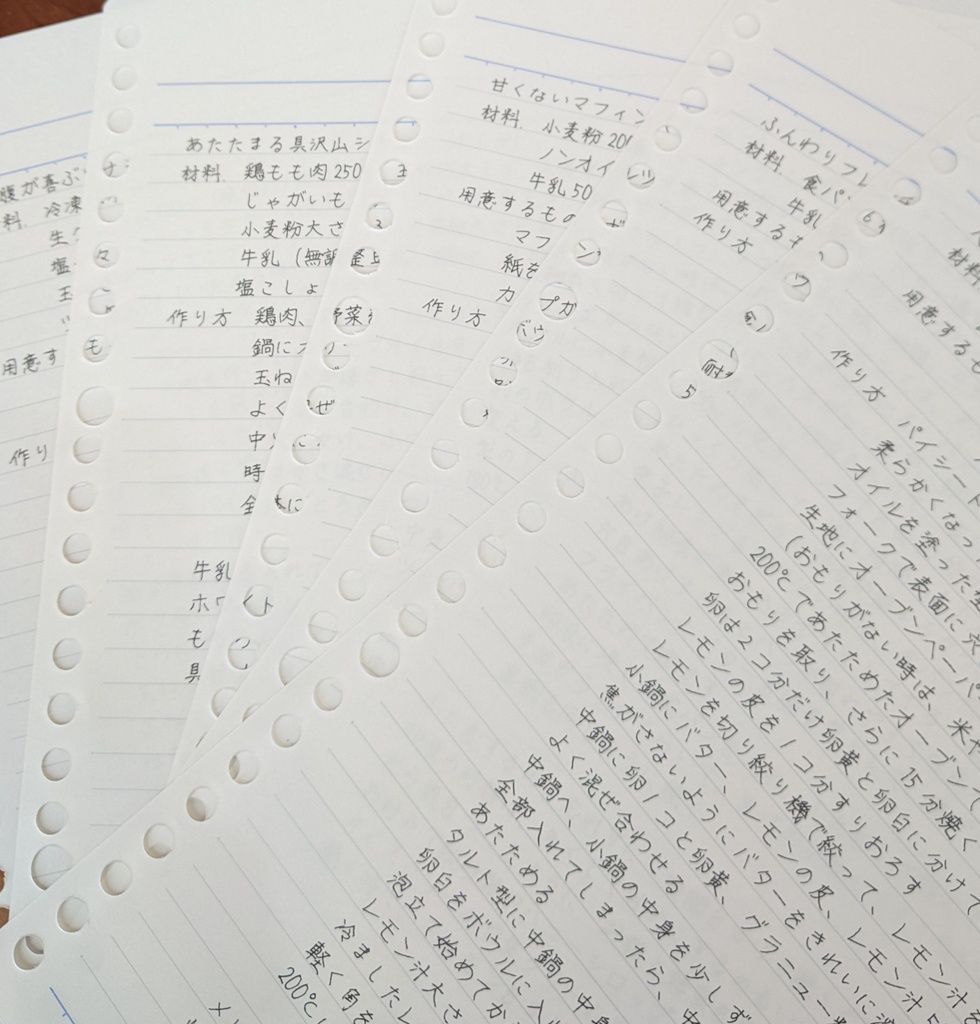 腹が喜ぶ
料 冷凍
生ク
塩
玉
用意す
作り
あたたまる具沢山シ
材料 鶏もも肉250
じゃがいも
小麦粉大さ
牛乳(無調整
塩こしょ
作り方 鶏肉、野菜
鍋に
玉ね
よく混ぜ
中
時
全体に
牛乳
ホワイト
も
具
甘くないマフィン
材料 小麦粉 200
ノンオイル
牛乳 50
用意するもの
マフィン
紙を
カップガ
作り方
ふんわりフレ
材料 食パ
牛乳
用意するも
作り方
材料
用意するも
作り方 パイシート
柔らかくなっ
オイルを塗った型
フォークで表面に穴
生地にオーブンペーパ
(おもりがない時は、米や
200℃であたためたオーブンで
おもりを取り、さらに15分焼く
卵は2コ分だけ卵黄と卵白に分けて
レモンの皮を1コ分すりおろす
レモンを切り絞り機で絞って、レモン汁を
小鍋にバター、レモンの皮、レモン汁
焦がさないようにバターをきれいに溶
中鍋に卵1コと卵黄、グラニュー糖
よく混ぜ合わせる
中鍋へ、小鍋の中身を少しず
全部入れてしまったら、中
あたためる
タルト型に中鍋の中身
卵白をボウルに入
泡立て始めてか
レモン汁大さ
冷ましたレ
軽く角を
200℃